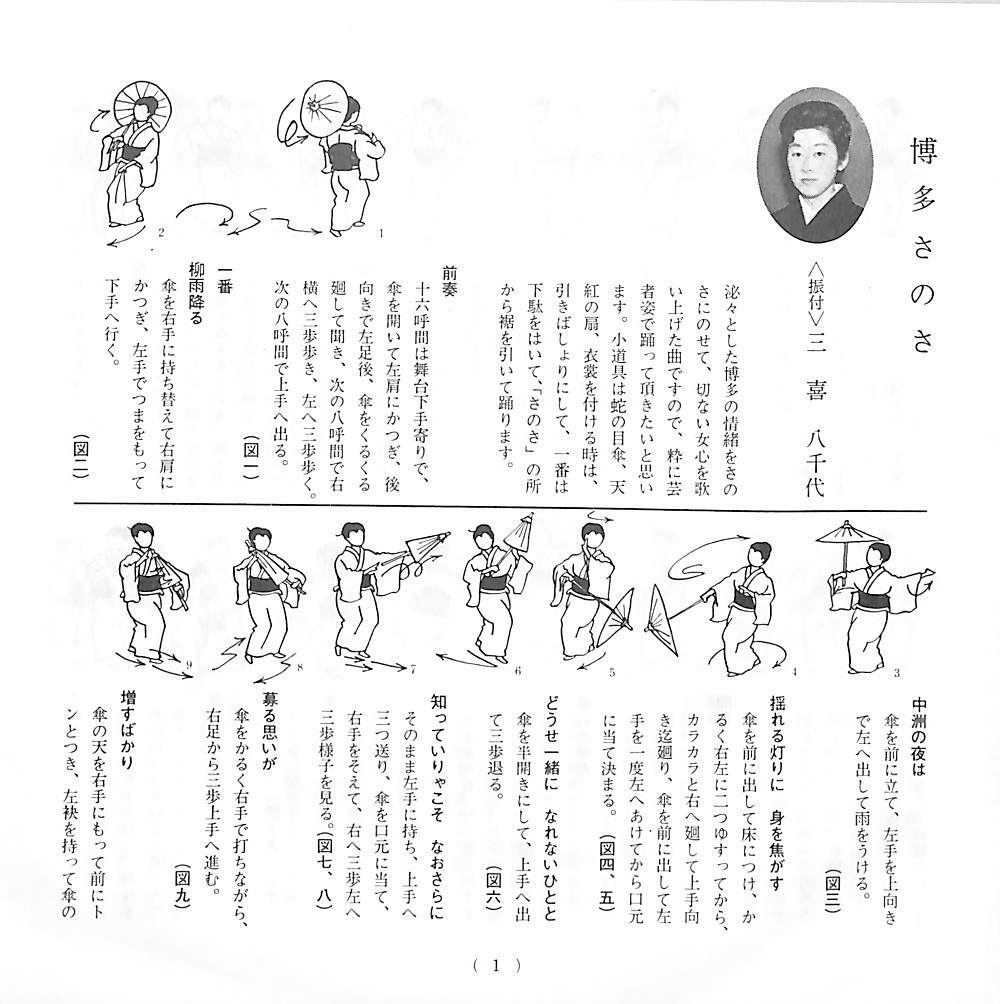 博多さのさ
〈振付〉三喜　八千代
泌々とした博多の情緒をさの
さにのせて、切ない女心を歌
い上げた曲ですので、粋に芸
者姿で踊って頂きたいと思い
ます。小道具は蛇の目傘、天
紅の扇、衣裳を付ける時は、
引きばしょりにして、一番は
下駄をはいて、「さのさ」の所
から裾を引いて踊ります。
前奏
十六呼間は舞台下手寄りで、
傘を開いて左肩にかつぎ、後
向きで左足後、傘をくるくる
廻して聞き、次の八呼間で右
横へ三歩歩き、左へ三歩歩く。
次の八呼間で上手へ出る。
（図一）
一番
柳雨降る
傘を右手に持ち替えて右肩に
かつぎ、左手でつまをもって
下手へ行く。
（図二）
1
2
中洲の夜は
傘を前に立て、左手を上向き
で左へ出して雨をうける。
（図三）
揺れる灯りに　身を焦がす
傘を前に出して床につけ、か
るく右左に二つゆすってから、
カラカラと右へ廻して上手向
き迄廻り、傘を前に出して左
手を一度左へあけてから口元
に当て決まる。（図四、五）
どうせ一緒に　なれないひとと
傘を半開きにして、上手へ出
て三歩退る。
（図六）
知っていりゃこそ　なおさらに
そのまま左手に持ち、上手へ
三つ送り、傘を口元に当て、
右手をそえて、右へ三歩左へ
三歩様子を見る。（図七、八）
募る思いが
傘をかるく右手で打ちながら、
右足から三歩上手へ進む。
（図九）
増すばかり
傘の天を右手にもって前にト
ンとつき、左袂を持って傘の
3
4
5
6
7
8
9
( 1 )